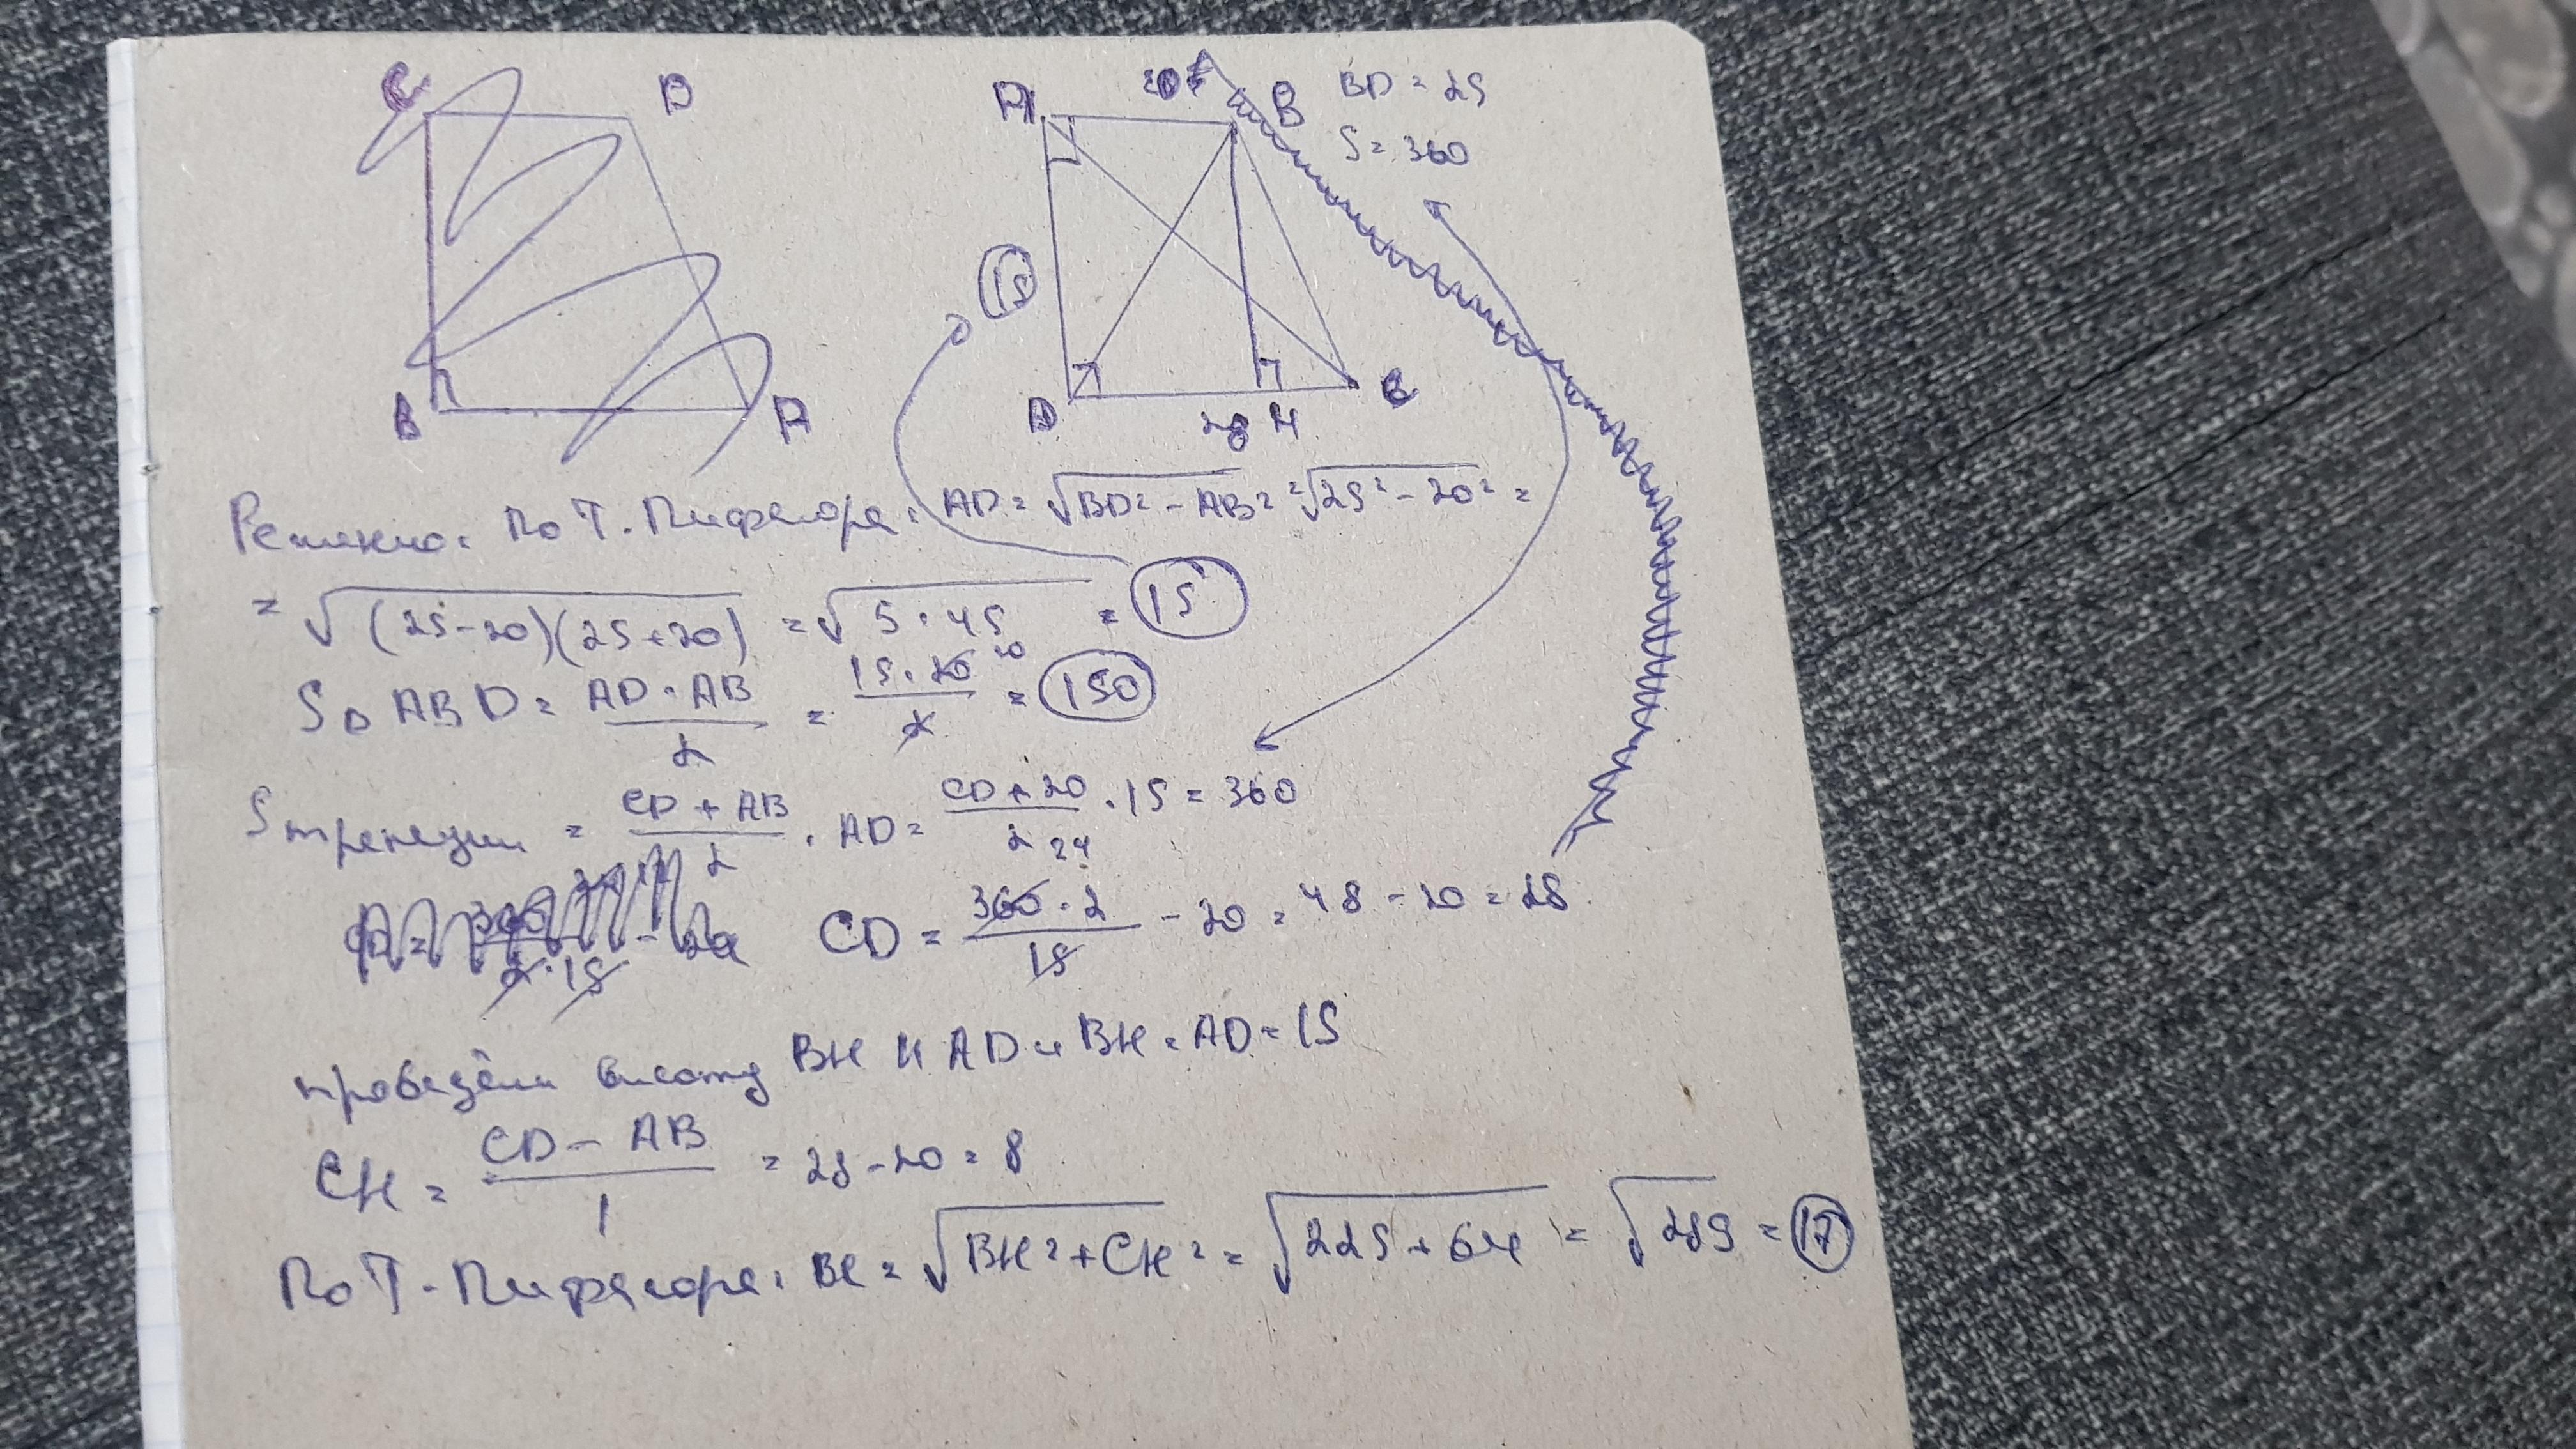 C D B A
A 20 B BD = 25
S = 360
15
D 28 H C
Решение: По Т. Пифагора: AD = √BD² - AB² = √25² - 20² =
= √(25-20)(25+20) = √5 · 45 = 15
S△ABD = AD · AB / 2 = 15 · 20 10 / 2 = 150
S трапеции = CD + AB / 2 · AD = CD + 20 / 2 · 15 = 360
CD = 360 24 · 2 / 15 - 20 = 48 - 20 = 28
проведём высоту BH || AD и BH = AD = 15
CH = CD - AB / 1 = 28 - 20 = 8
По Т. Пифагора: BC = √BH² + CH² = √225 + 64 = √289 = 17